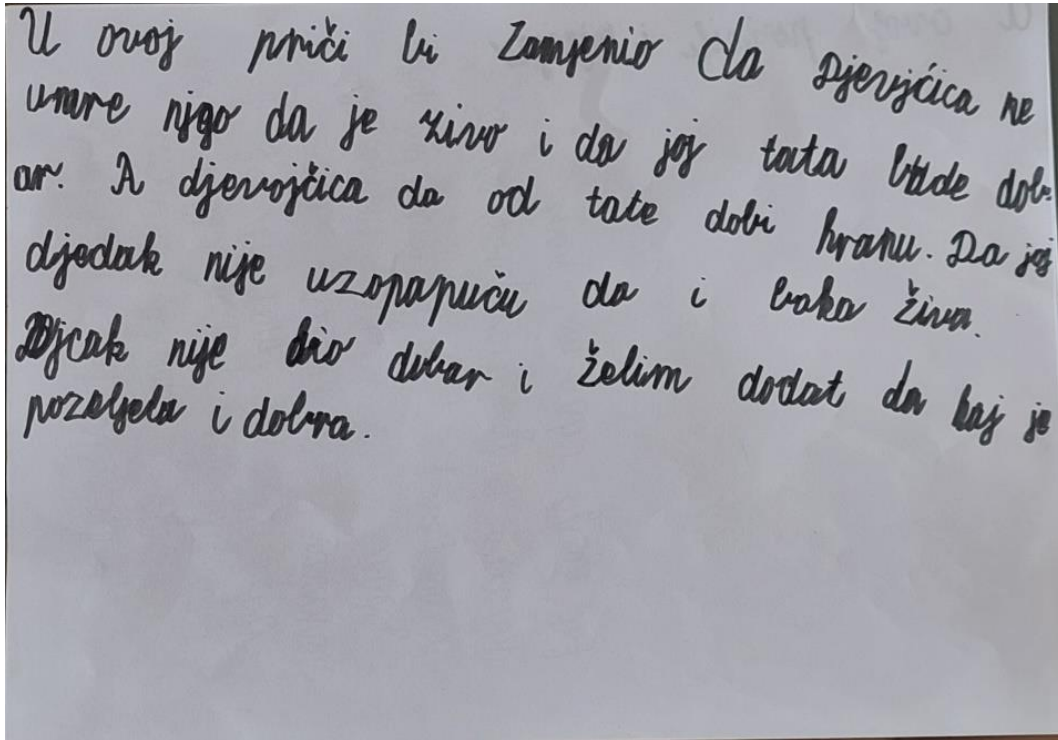 U ovoj priči bi Zamjenio da Djevojćica ne
umre njgo da je živo i da joj tata bude dob-
ar. A djevojčica da od tate dobi hranu. Da joj
djedak nije uzopapuču da i baka živa.
Djcak nije bio dobar i želim dodat da kaj je
pozeljela i dobra.